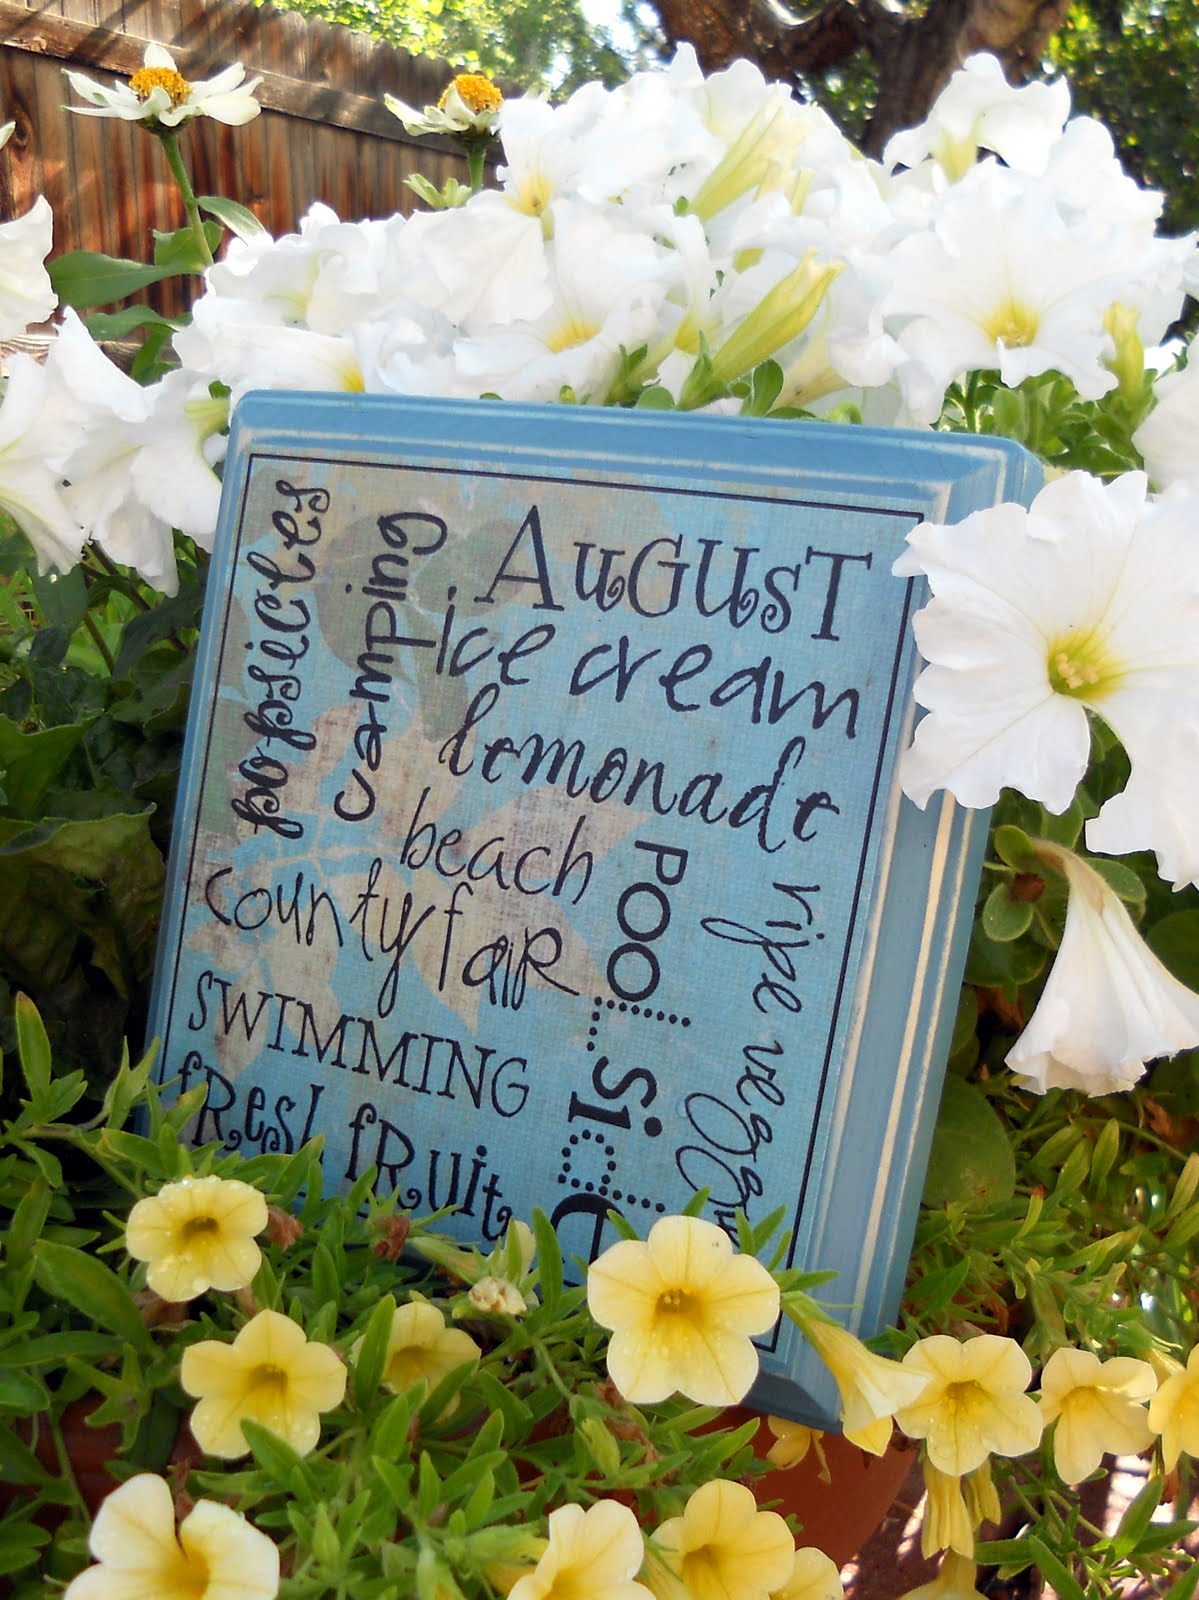 popsicles
camping
AuGUsT
ice cream
lemonade
beach
county faiR
SWIMMING
fResh fRuit
pool side
ripe veggies